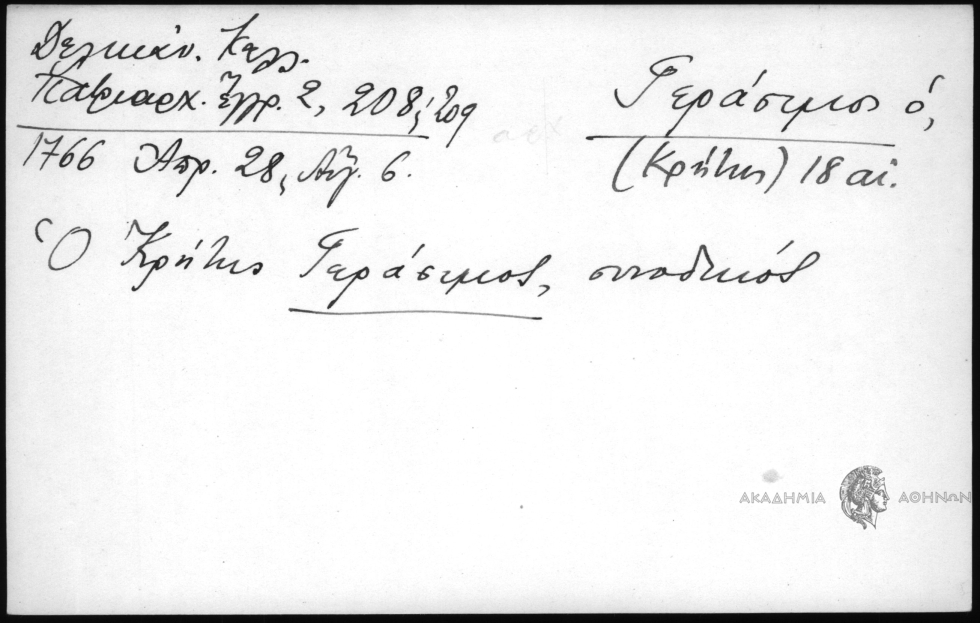 Δελικάν. Καλλ.
Πατριαρχ. Ἔγγρ. 2, 208, 209
1766 Απρ. 28, Αὐγ. 6.
Γεράσιμος ὁ,
(Κρήτης) 18 αἰ.
Ὁ Κρήτης Γεράσιμος, συνοδικός
ΑΚΑΔΗΜΙΑ ΑΘΗΝΩΝ